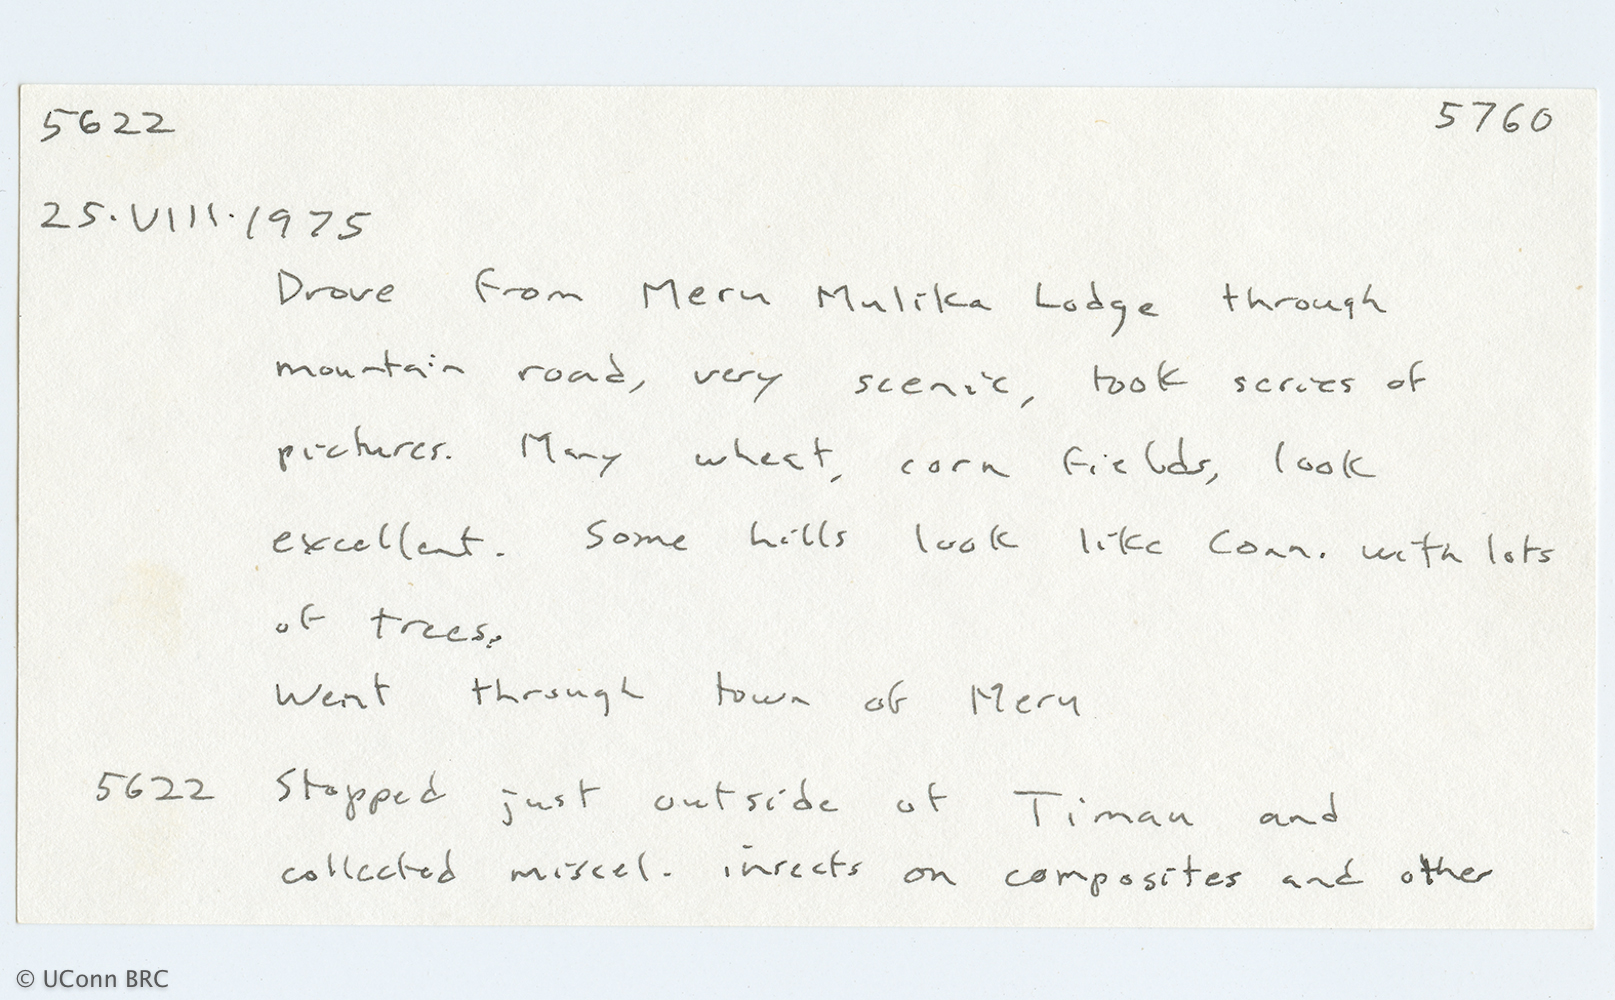 5622 5760
25.VIII.1975
Drove from Meru Mulika Lodge through
mountain road, very scenic, took series of
pictures. Many wheat, corn fields, look
excellent. Some hills look like Conn. with lots
of trees.
Went through town of Meru
5622 Stopped just outside of Timau and
collected miscel. insects on composites and other
© UConn BRC